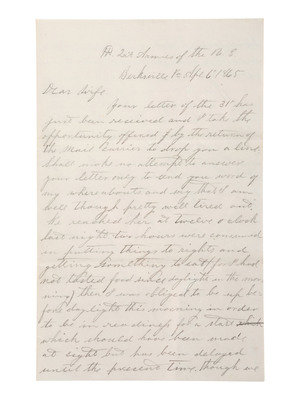 Hd. Qrs Armies of the U. S.
Burkeville Va. Apl. 6 1865
Dear Wife,
Your letter of the 31 has
just been received and I take the
opportunity offered by the return of
the Mail Carrier to drop you a line.
Shall make no attempt to answer
your letter only to send you word of
my whereabouts and say that I am
well though pretty well tired out.
We reached here at twelve o'clock
last night two hours were consumed
in putting things to rights and
getting something to eat for I had
not tasted food since daylight in the mor-
ning, then I was obliged to be up be-
fore daylight this morning in order
to be in readiness for a start
which should have been made
at eight but has been delayed
until the present time though we